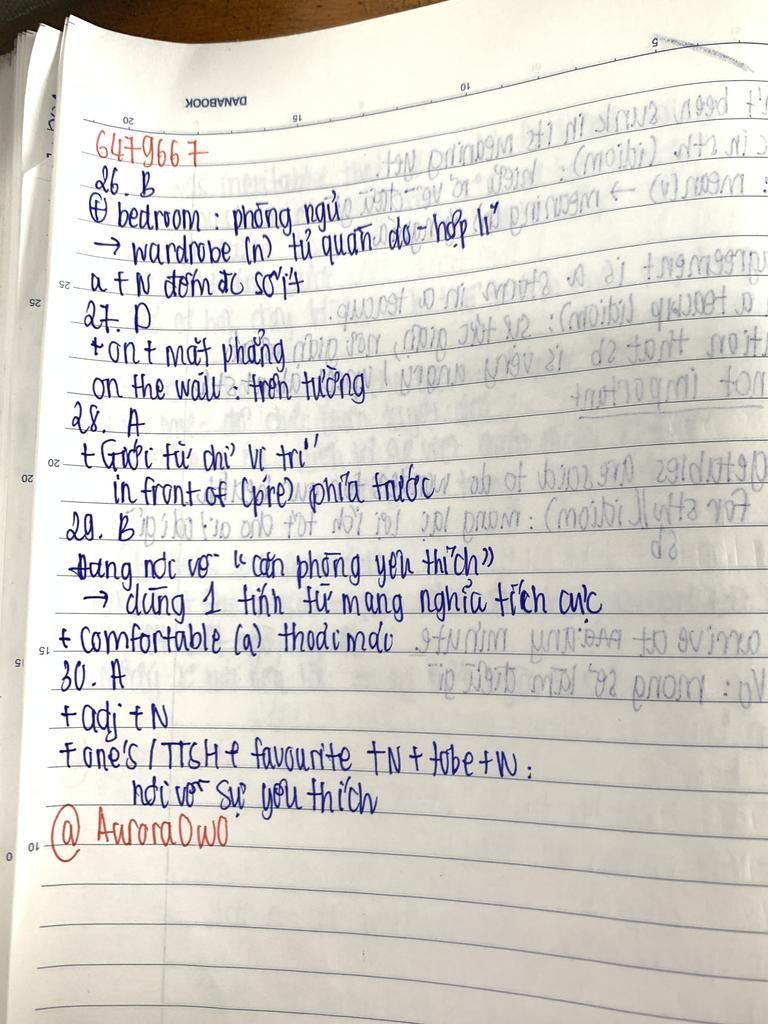 DANABOOK
6479667
26. B
⊕ bedroom : phòng ngủ
→ wardrobe (n) tủ quần áo - hợp lí
a + N đếm đc số ít
27. D
+ on + mặt phẳng
on the wall : trên tường
28. A
+ Giới từ chỉ vị trí
in front of (pre) phía trước
29. B
Đang nói về "căn phòng yêu thích"
→ dùng 1 tính từ mang nghĩa tích cực
+ comfortable (a) thoải mái
30. A
+ adj + N
+ one's / TTSH + favourite + N + tobe + N :
nói về sự yêu thích
@ Aurora0w0